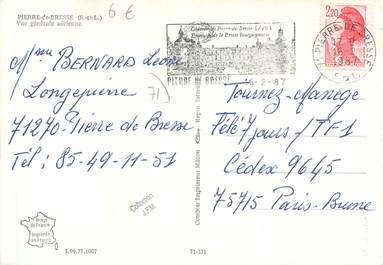 PIERRE-de-BRESSE (S.-et-L.)
Vue générale aérienne
6 €
Mme BERNARD Léone
Longepierre
71270 Pierre de Bresse
Tél : 85-49-11-51
71)
Château de Pierre de Bresse
de la Bresse bourguignonne
PIERRE DE BRESSE
16-2-87
2,20
PIERRE DE BRESSE
1987
Tournez-Manège
Télé 7 jours/TF1
Cédex 9645
75715 Paris-Brune
Collection
J.F.M.
Combier Imprimeur Mâcon
Image
de France
Imprimée
en France
3.99.77.1007
71-331